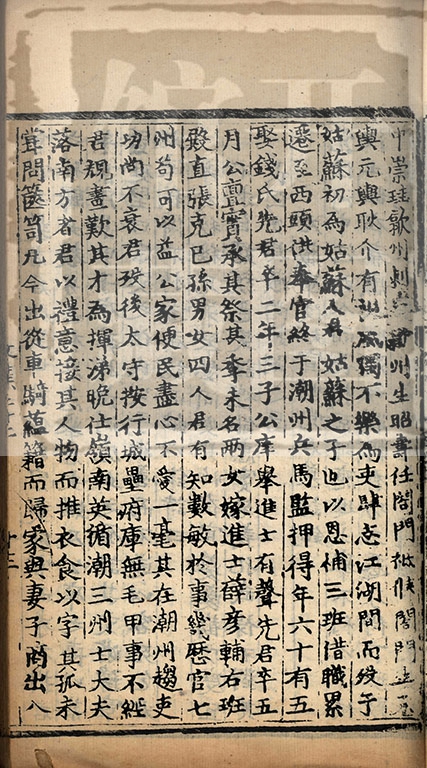 中崇珪歙州刺史
興元興耿介有不獨不樂為吏肆志江湖間而殁于
姑蘇初為姑蘇人君姑蘇之子也以恩補三班借職累
遷至西頭供奉官終于潮州兵馬監押得年六十有五
娶錢氏先君卒二年三子公庠舉進士有聲先君卒五
月公實承其祭其季未名兩女嫁進士薛彥輔右班
殿直張克已孫男女四人君有知數敏於事幾歷官七
州苟可以益公家便民盡心不愛一毫其在潮州趨吏
功尚不衰君殁後太守按行城壘府庫無毛甲事不經
君規畫歎其才為揮涕晚仕嶺南英循潮三州士大夫
落南方者君以禮意接其人物而推衣食以字其孤未
嘗問篋笥凡今出從車騎蘊籍而歸家與妻子閉出入